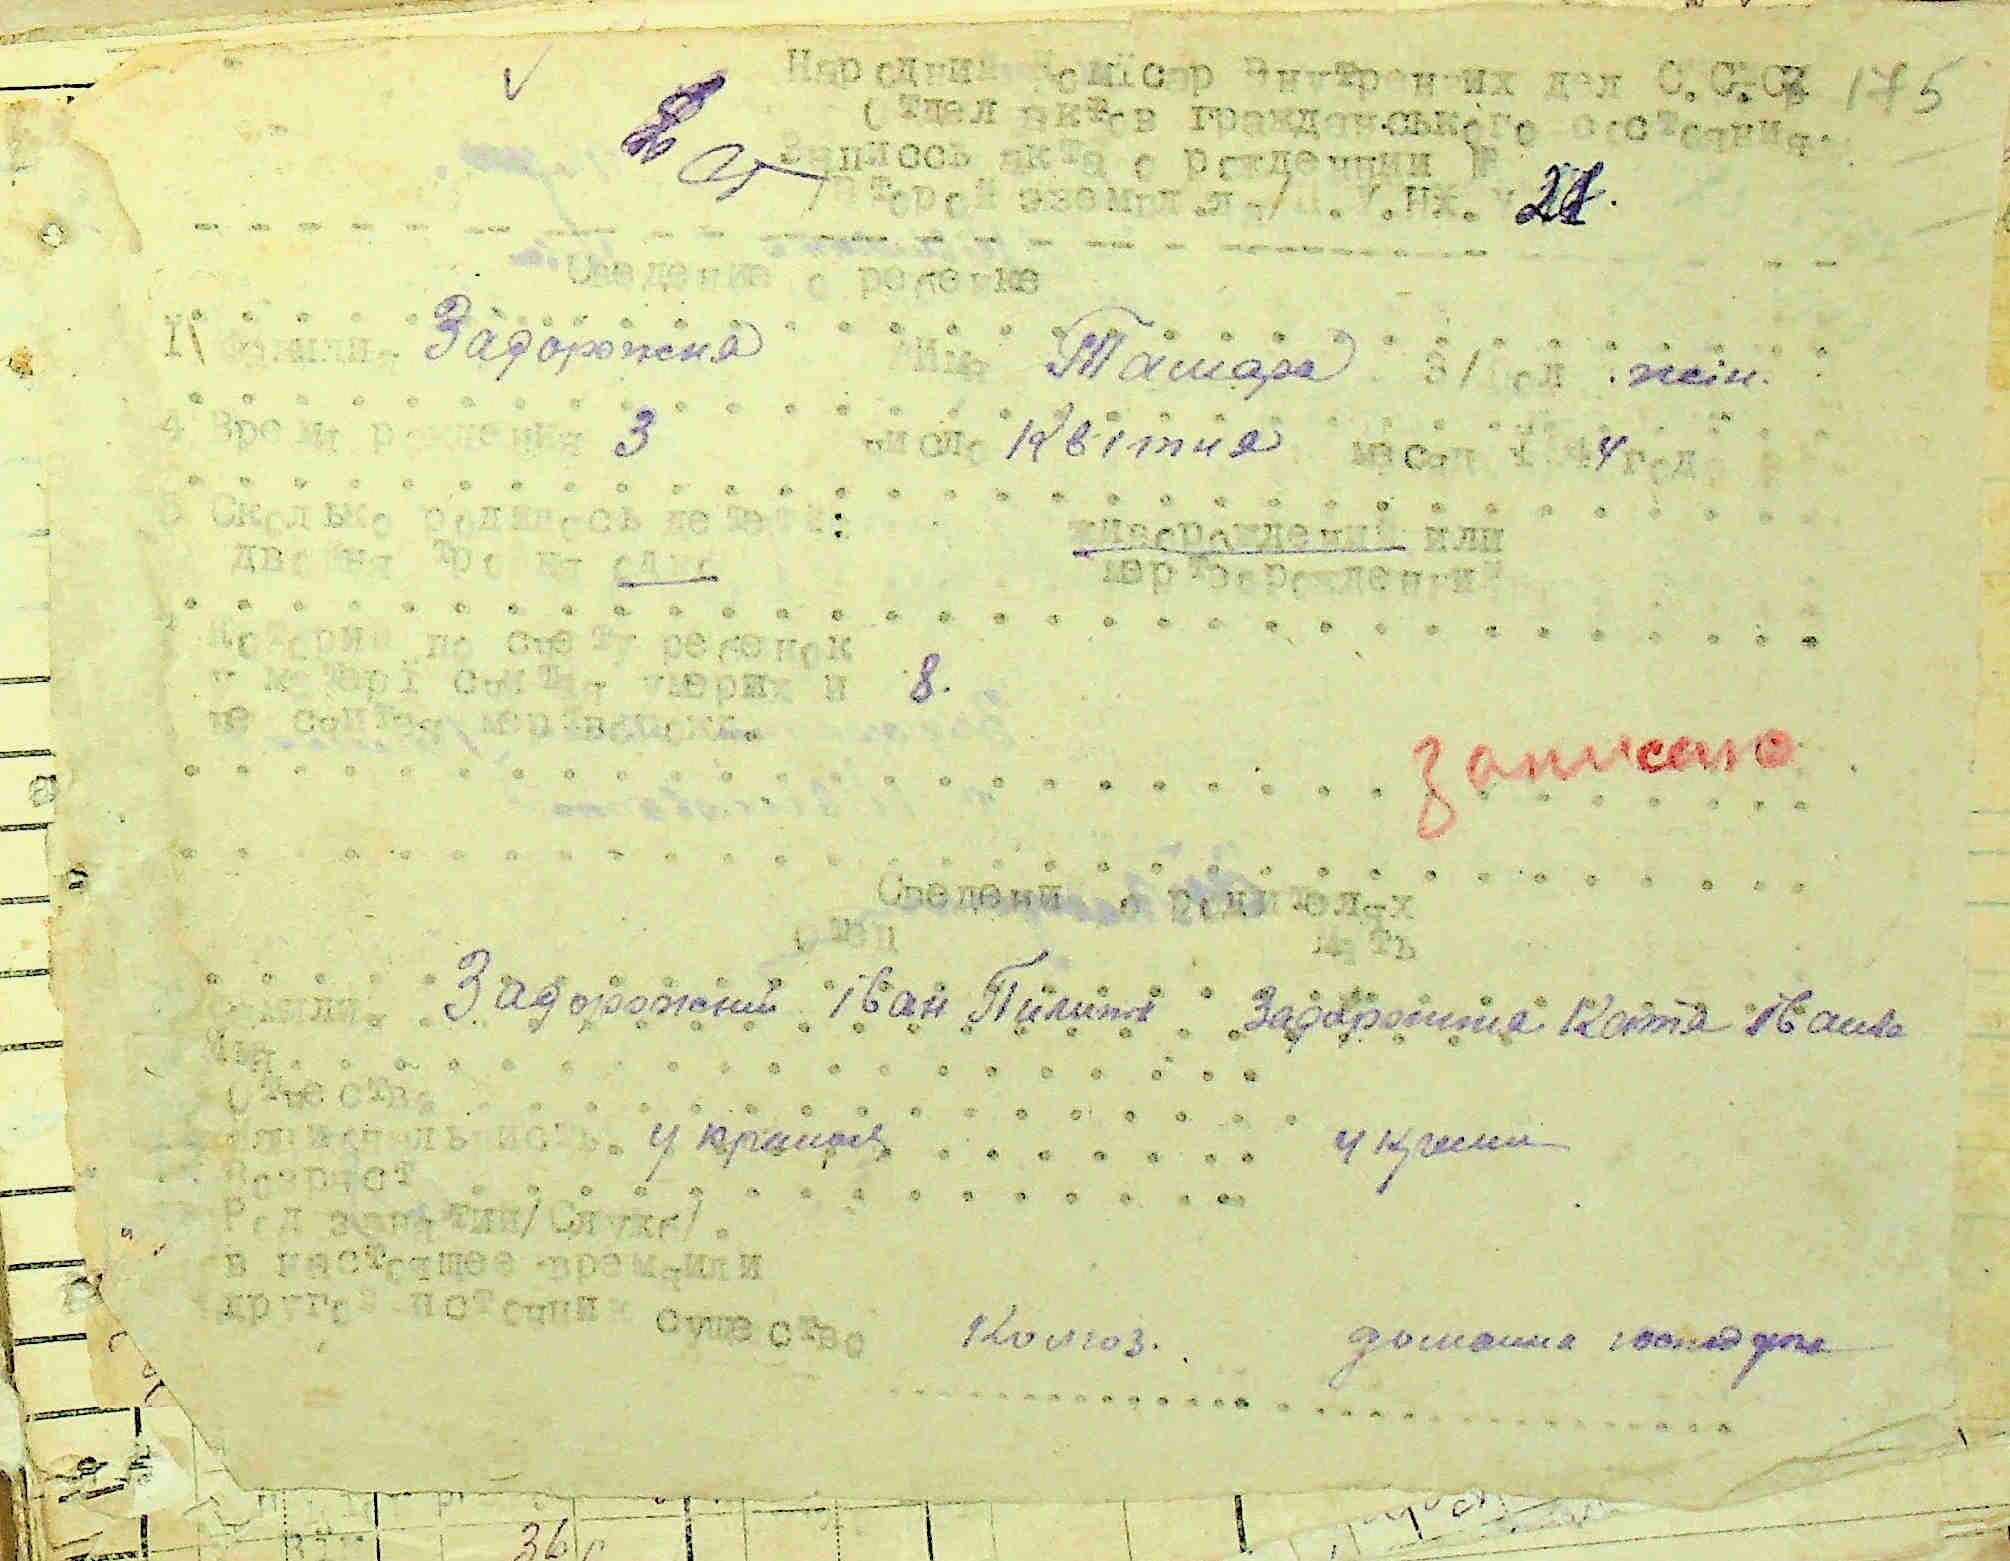 Народний комісар Внутренних дел С.С.С.Р 175
Отдел актов гражданського состояния.
Запись акта о рождении №
/Второй экземпляр/ 21.
Сведение о ребенке
I/ Фамилия Задорожня Имя Тамара 3/Пол жін.
4 Время рождения 3 число Квітня месяц 1944 года
5 Сколько родилось детей:
живорожденный или
двойня тройня одно
мертворожденный
Который по счету ребенок
у матері считая умерих и 8.
не считая мертворожд.
Записано
Сведения о родителях
Отец Мать
Фамилия Задорожний Іван Пилип Задорожня Катя Іванів
Имя
Отчество
Национальность україн україн
Возраст
Род занятий/Служб/.
в настоящее время или
другой источник существо Колгоз. домашня господарка
36 г